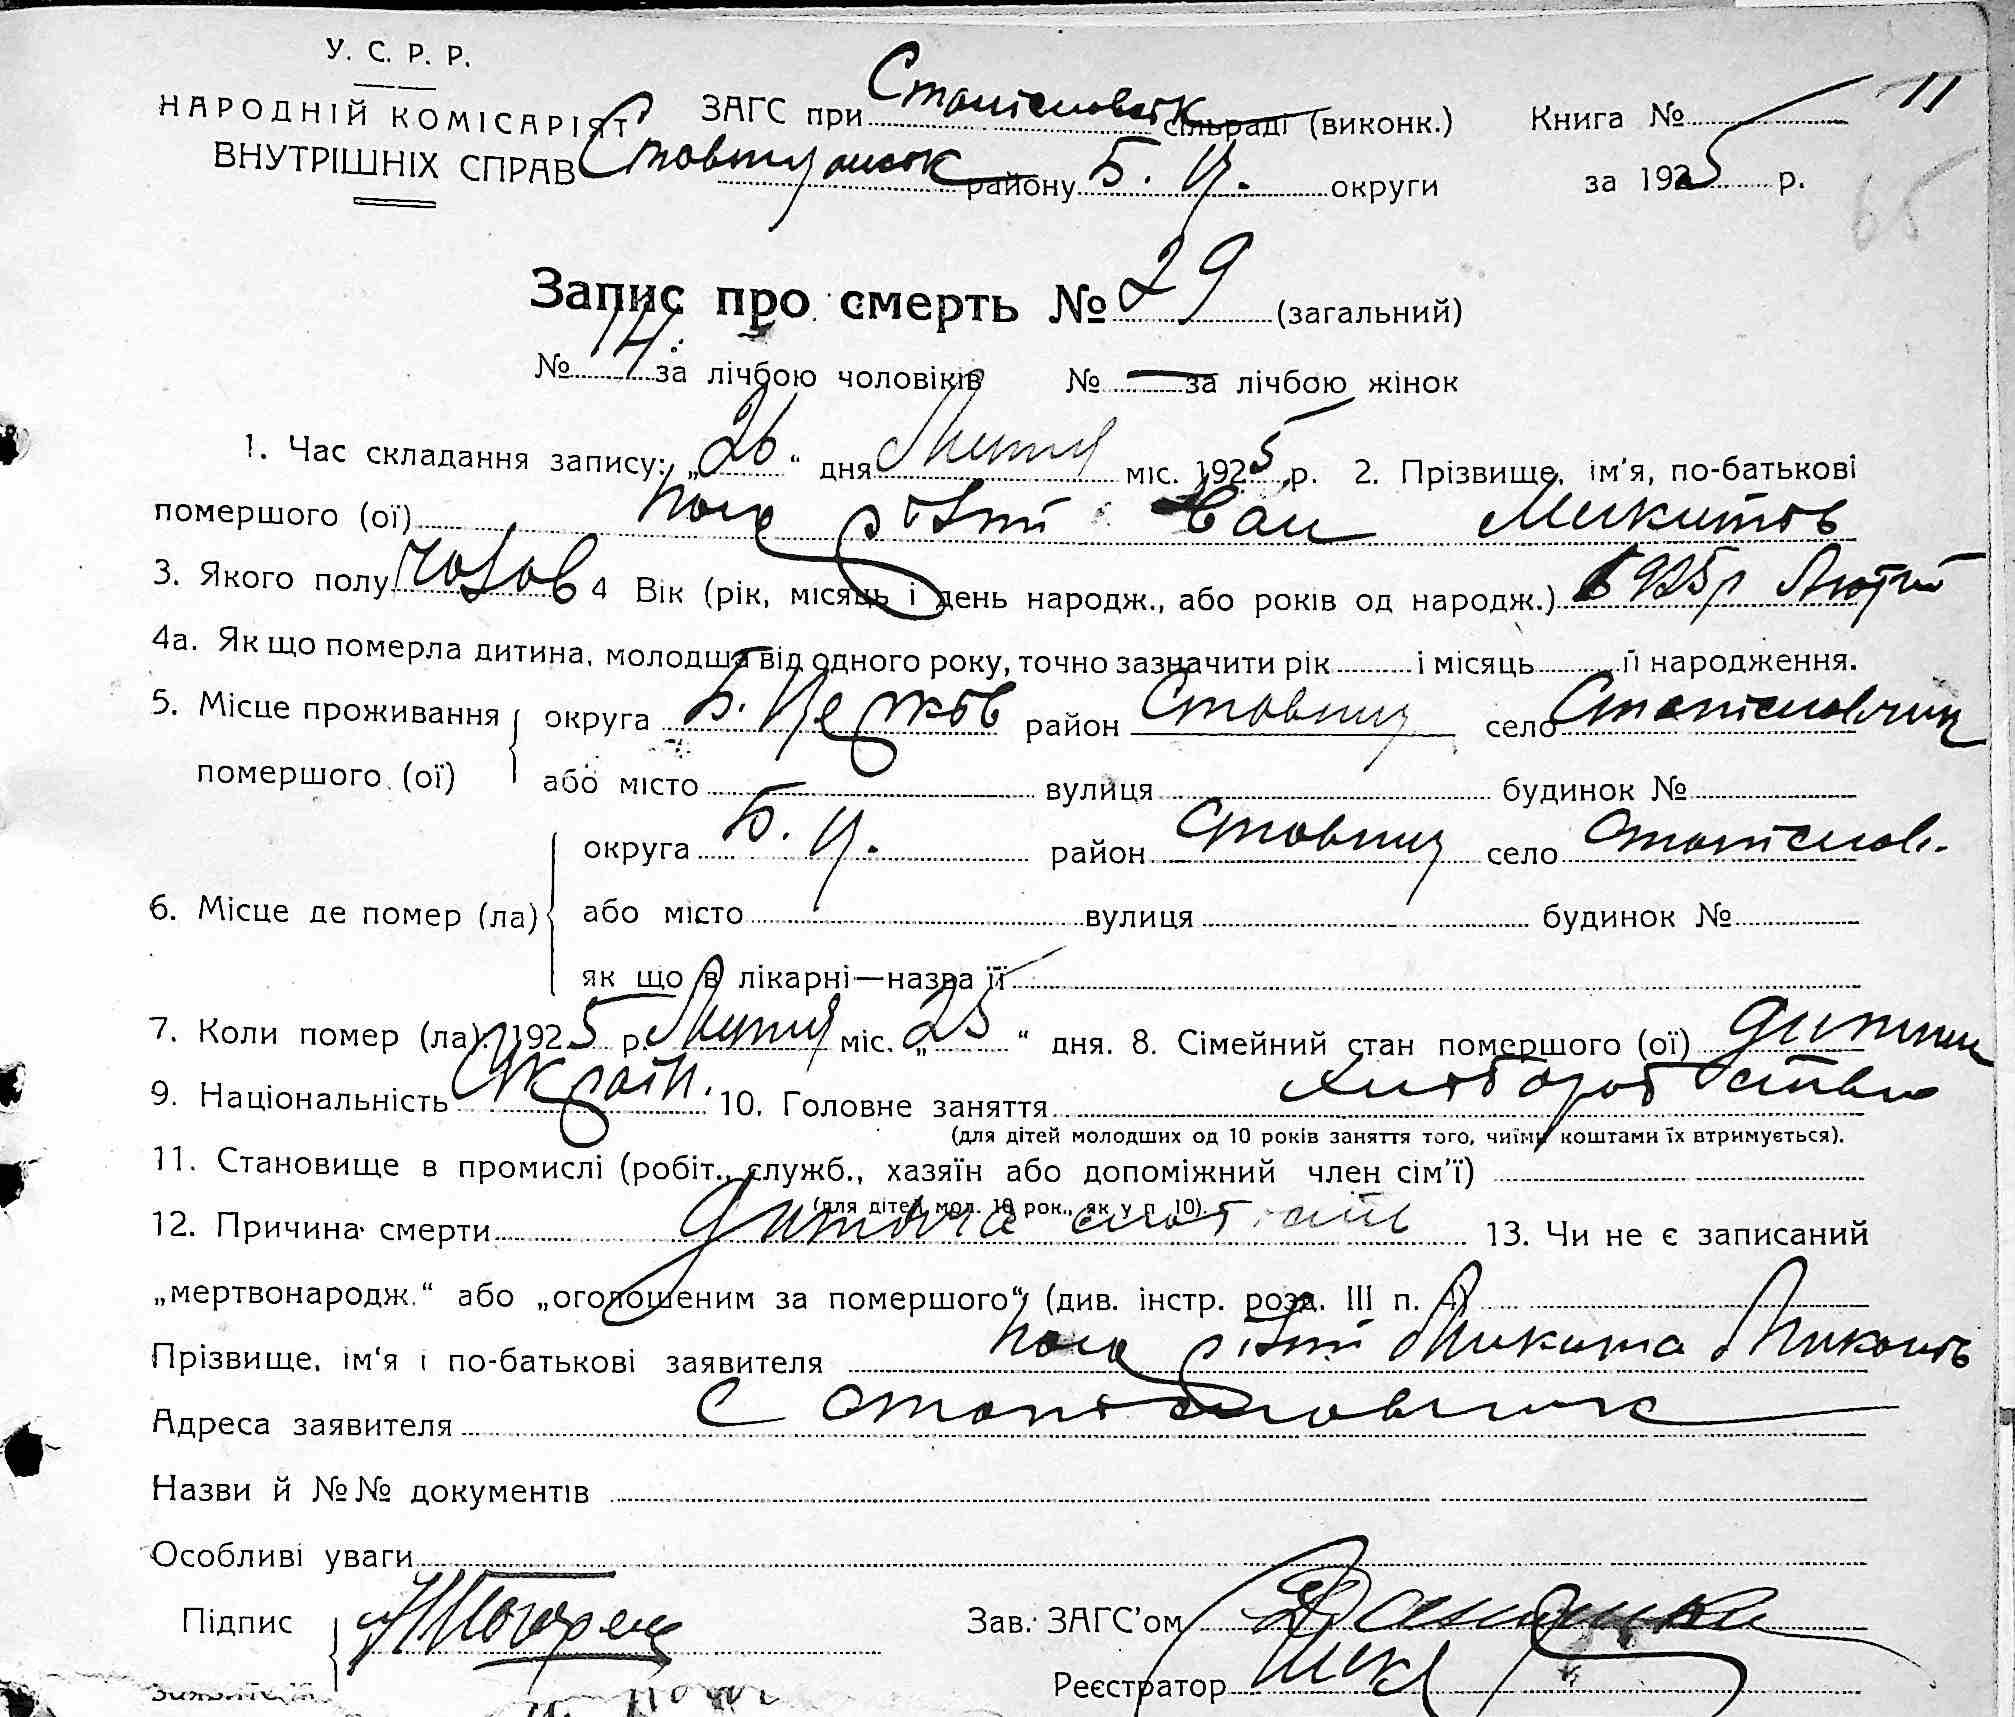 У. С. Р. Р.
НАРОДНІЙ КОМІСАРІЯТ
ВНУТРІШНІХ СПРАВ
ЗАГС при сільраді (виконк.)
району Б. Ц. округи
Книга № 11
за 1925 р.
65
Запис про смерть № 29 (загальний)
№ 14 за лічбою чоловіків № — за лічбою жінок
1. Час складання запису: „26“ дня Лютня міс. 1925 р. 2. Прізвище, ім'я, по-батькові
помершого (ої) Іван Микитов
3. Якого полу чолов 4 Вік (рік, місяць і день народж., або років од народж.) 1925р Лютий
4а. Як що померла дитина, молодша від одного року, точно зазначити рік і місяць її народження.
5. Місце проживання округа Б. Церков район Ставищ село Станіславчик
помершого (ої) або місто вулиця будинок №
округа Б. Ц. район Ставищ село Станіслав.
6. Місце де помер (ла) або місто вулиця будинок №
як що в лікарні—назва її
7. Коли помер (ла) 1925 р. Лютня міс. „25“ дня. 8. Сімейний стан помершого (ої) дитина
9. Національність Україн. 10. Головне заняття хліборобство
(для дітей молодших од 10 років заняття того, чиїми коштами їх втримується).
11. Становище в промислі (робіт., служб., хазяїн або допоміжний член сім'ї)
(для дітей мол. 10 рок., як у п 10)
12. Причина смерти Дитяча слабість 13. Чи не є записаний
„мертвонародж.“ або „оголошеним за помершого“ (див. інстр. розд. III п. 4)
Прізвище, ім'я і по-батькові заявителя Микита
Адреса заявителя с Станіславчик
Назви й №№ документів
Особливі уваги
Підпис Зав. ЗАГС'ом
Реєстратор